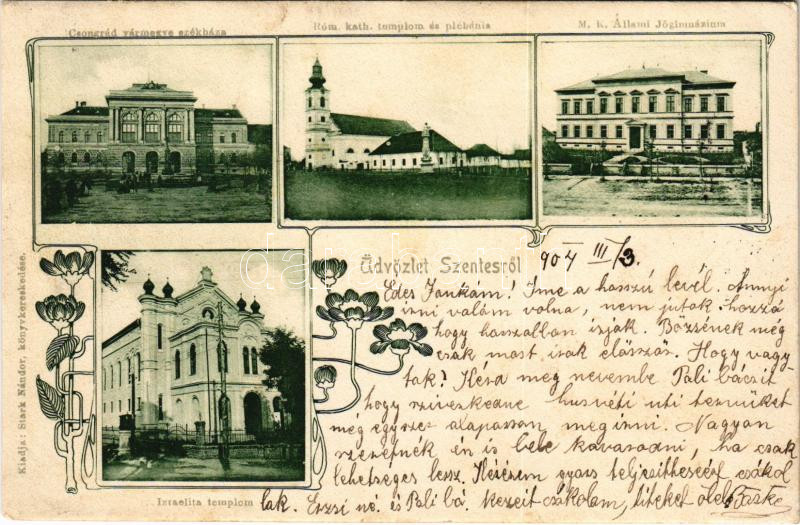 Csongrád vármegye székháza
Róm. kath. templom és plébánia
M. K. Állami Főgimnázium
Üdvözlet Szentesről
904 III/3
Édes Jankám! Ime a hosszú levél. Annyi
irni valóm volna, nem jutok hozzá
hogy hosszabban irjak. Bözsének még
csak most irok először. Hogy vagy-
tok? Kérd meg nevembe Pali bácsit
hogy sziveskedne husvéti uti tervüket
még egyszer alaposan megirni. Nagyon
szeretnék én is bele kavarodni, ha csak
lehetséges lessz. Kérésem gyors teljesitéseért csókol
lak. Erzsi né. és Pali bá. kezeit csókolom, titeket ölel
Izraelita templom
Kiadja: Stark Nándor, könyvkereskedése.